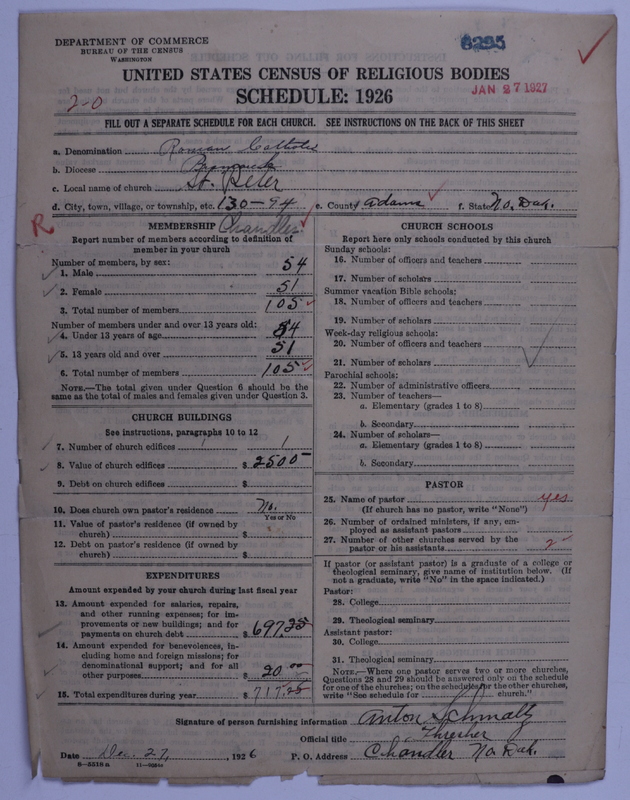 DEPARTMENT OF COMMERCE
BUREAU OF THE CENSUS
WASHINGTON
8295
UNITED STATES CENSUS OF RELIGIOUS BODIES
SCHEDULE: 1926
JAN 27 1927
2-0
FILL OUT A SEPARATE SCHEDULE FOR EACH CHURCH. SEE INSTRUCTIONS ON THE BACK OF THIS SHEET
a. Denomination Roman Catholic
b. Diocese Bismarck
c. Local name of church St. Peter
d. City, town, village, or township, etc. 130-94 e. County Adams f. State No. Dak.
R
MEMBERSHIP Chandler
Report number of members according to definition of
member in your church
Number of members, by sex:
1. Male 54
2. Female 51
3. Total number of members 105
Number of members under and over 13 years old:
4. Under 13 years of age 54
5. 13 years old and over 51
6. Total number of members 105
NOTE.—The total given under Question 6 should be the
same as the total of males and females given under Question 3.
CHURCH BUILDINGS
See instructions, paragraphs 10 to 12
7. Number of church edifices 1 1
8. Value of church edifices $ 2500-
9. Debt on church edifices $
10. Does church own pastor's residence No.
Yes or No
11. Value of pastor's residence (if owned by
church) $
12. Debt on pastor's residence (if owned by
church) $
EXPENDITURES
Amount expended by your church during last fiscal year
13. Amount expended for salaries, repairs,
and other running expenses; for im-
provements or new buildings; and for
payments on church debt $ 697.25
14. Amount expended for benevolences, in-
cluding home and foreign missions; for
denominational support; and for all
other purposes $ 20.00
15. Total expenditures during year $ 717.25
CHURCH SCHOOLS
Report here only schools conducted by this church
Sunday schools:
16. Number of officers and teachers
17. Number of scholars
Summer vacation Bible schools:
18. Number of officers and teachers
19. Number of scholars
Week-day religious schools:
20. Number of officers and teachers
21. Number of scholars
Parochial schools:
22. Number of administrative officers
23. Number of teachers—
a. Elementary (grades 1 to 8)
b. Secondary
24. Number of scholars—
a. Elementary (grades 1 to 8)
b. Secondary
PASTOR
25. Name of pastor yes
(If church has no pastor, write "None")
26. Number of ordained ministers, if any, em-
ployed as assistant pastors
27. Number of other churches served by the
pastor or his assistants 2
If pastor (or assistant pastor) is a graduate of a college or
theological seminary, give name of institution below. (If
not a graduate, write "No" in the space indicated.)
Pastor:
28. College
29. Theological seminary
Assistant pastor:
30. College
31. Theological seminary
NOTE.—Where one pastor serves two or more churches,
Questions 28 and 29 should be answered only on the schedule
for one of the churches; on the schedules for the other churches,
write "See schedule for church."
Signature of person furnishing information Anton Schmaltz
Official title Thresher
Date Dec. 27, 1926 P. O. Address Chandler No. Dak.
8-5518a